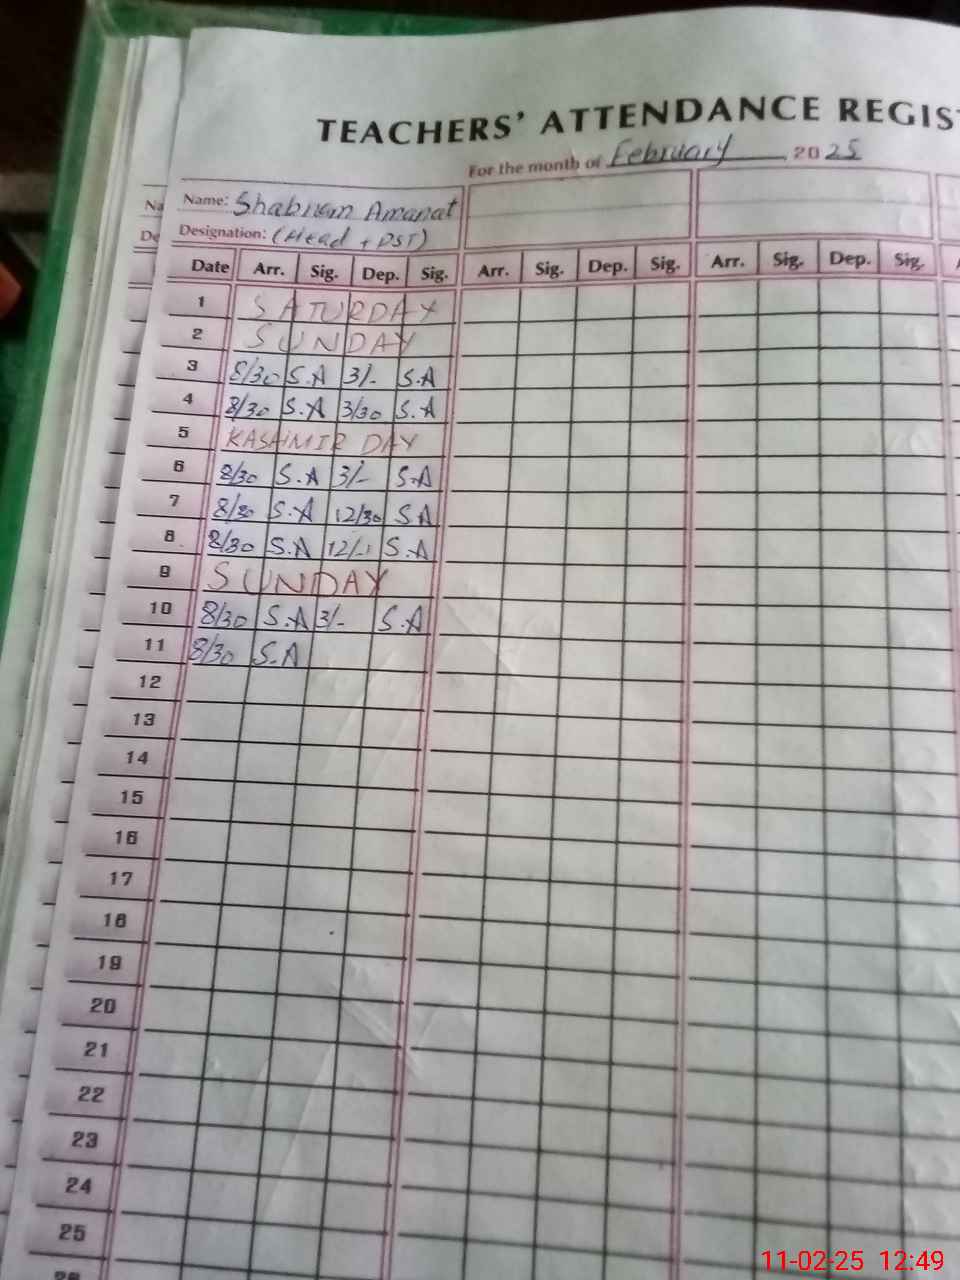 TEACHERS' ATTENDANCE REGIS
For the month of February, 2025
Na Name: Shabnam Amanat
De Designation: (Head + PST)
Date Arr. Sig. Dep. Sig. Arr. Sig. Dep. Sig. Arr. Sig. Dep. Sig.
1 SATURDAY
2 SUNDAY
3 8/30 S.A 3/- S.A
4 8/30 S.A 3/30 S.A
5 KASHMIR DAY
6 8/30 S.A 3/- S.A
7 8/30 S.A 12/30 S.A
8 8/30 S.A 12/- S.A
9 SUNDAY
10 8/30 S.A 3/- S.A
11 8/30 S.A
12
13
14
15
16
17
18
19
20
21
22
23
24
25
11-02-25 12:49